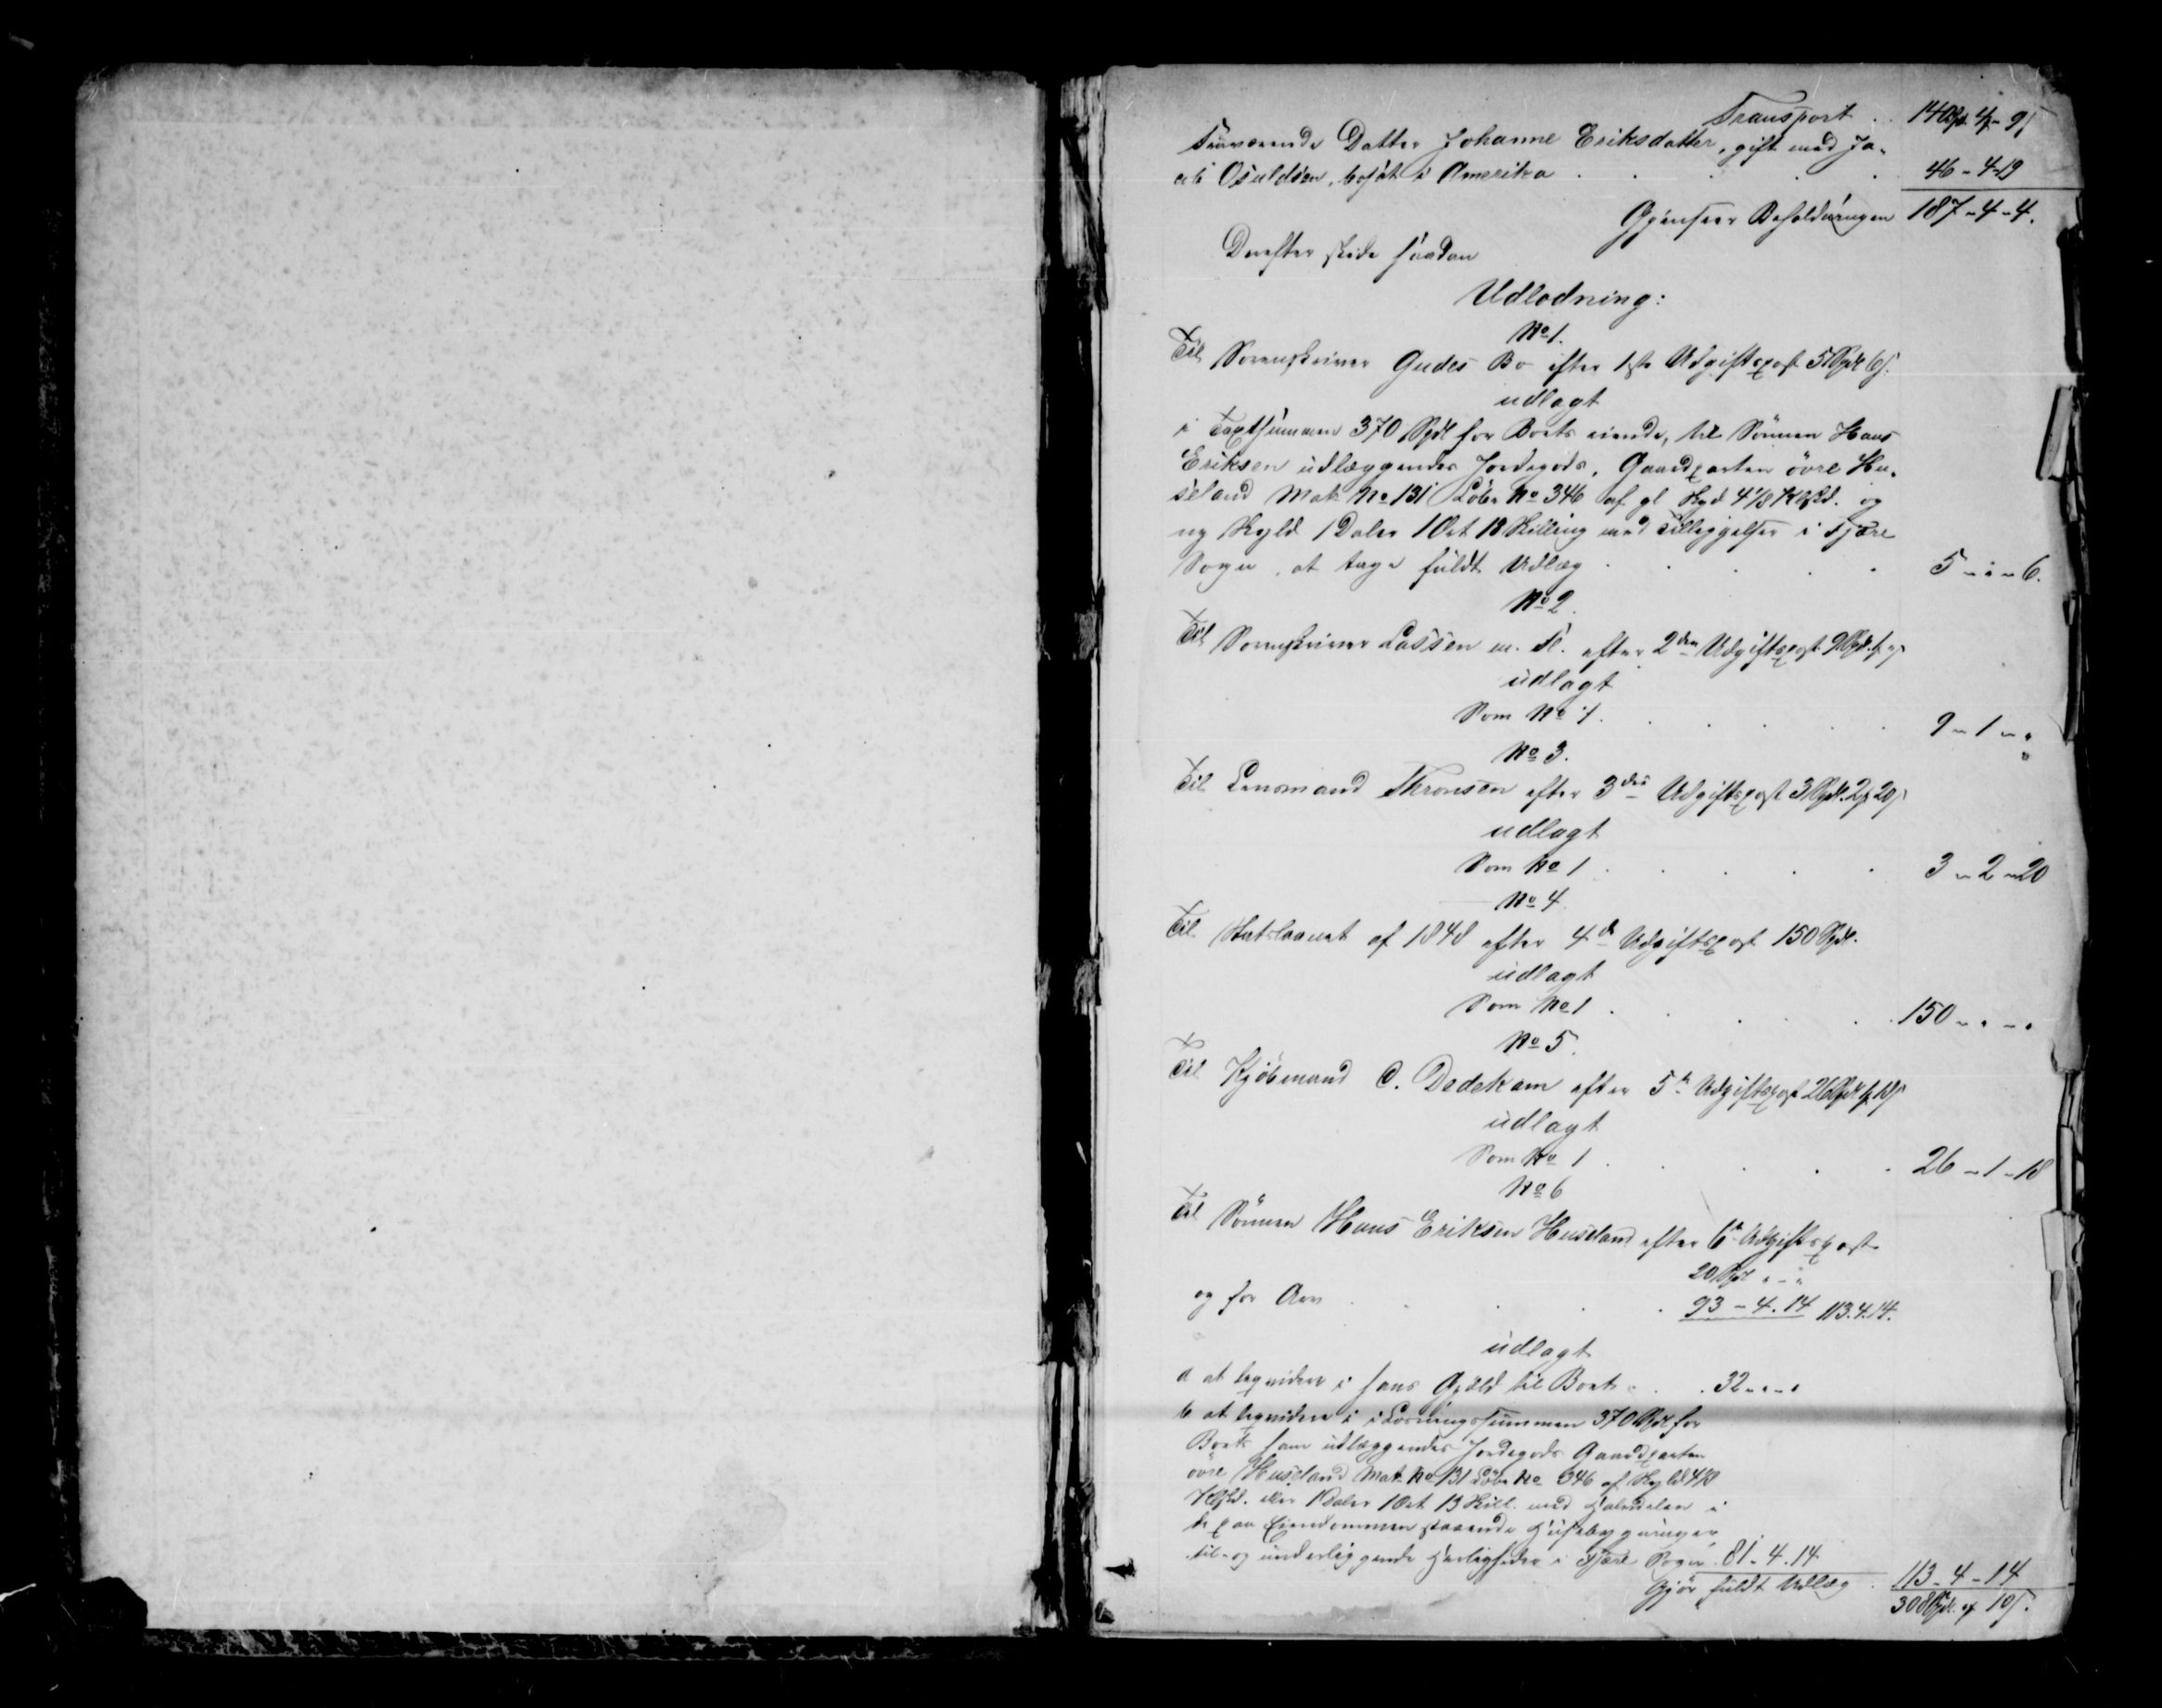 Transport . . 140 Spd. 4 - 9 s
Fraværende Datter Johanne Eriksdatter, gift med Ja-
cob Osuldsen, bosat i Amerika . . . . . 46 - 4 - 19
Gjenstaar Beholdningen 187 - 4 - 4.
Derefter skede saadan
Udlodning:
No 1.
Til Sorenskriver Gudes Bo efter 1ste Udgiftspost 5 Spd. 6 s.
udlagt
i Taxtsummen 370 Spd. for Boets eiende, til Sönnen Hans
Eriksen udlæggendes Jordegods, Gaardparten övre Hu-
seland Mat. No 131 Löbe No 346 af gl Skyld 4 1/8 Kalvskd. og
ny Skyld 1 Daler 1 Ort 13 Skilling med Tilliggelser i Fjære
Sogn, at tage fuldt Udlæg . . . . . 5 - " - 6.
No 2.
Til Sorenskriver Lassen m. Fl. efter 2den Udgiftspost 9 Spd. 1
udlagt
Som No 1. . . . . 9 - 1 - "
No 3.
Til Lensmand Thronsen efter 3die Udgiftspost 3 Spd. 2 20 s
udlagt
Som No 1 . . . . . 3 - 2 - 20
No 4
Til Statslaanet af 1848 efter 4de Udgiftspost 150 Spd.
udlagt
Som No 1 . . . . 150 - " - "
No 5.
Til Kjöbmand C. Dedekam efter 5te Udgiftspost 26 Spd. 1 18 s
udlagt
Som No 1 . . . . 26 - 1 - 18
No 6
Til Sönnen Hans Eriksen Huseland efter 6te Udgiftspost
20 Spd. " - "
og for Arv . . . . 93 - 4 . 14 113. 4. 14.
udlagt
a at liqvidere i hans Gjæld til Boet . . 32 - " - "
b at liqvidere i Lösningssummen 370 Spd. for
Boets ham udlæggendes Jordegods Gaardparten
övre Huseland Mat. No 131 Löbe No 346 af Skyld 4 1/8
Kalvskd. eller 1 Daler 1 Ort 13 Skill. med Halvdelen i
de paa Eiendommen staaende Husebygninger
til- og underliggende Herligheder i Fjære Sogn . 81 - 4 . 14
Gjör fuldt Udlæg . 113 - 4 - 14
308 Spd. " 10 s.